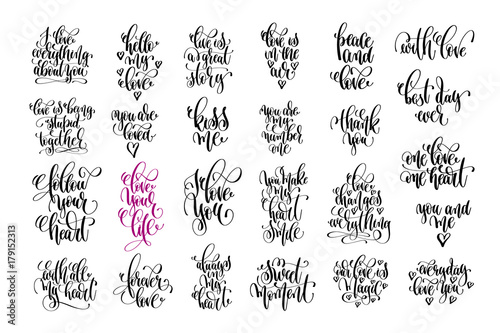 I love
everything
about you
hello
my
love
love is
a great
story
love is
in the
air
peace
and
love
with love
love is being
stupid
together
you are
loved
kiss
me
you are
my
number
one
thank
you
best day
ever
follow
your
heart
love
your
life
I love
you
you make
my
heart
smile
love
changes
everything
one love
one heart
you and
me
with all
my heart
forever
love
always
in my
heart
sweet
moment
our love is
magic
everyday
I love you
Adobe Stock | #179152313